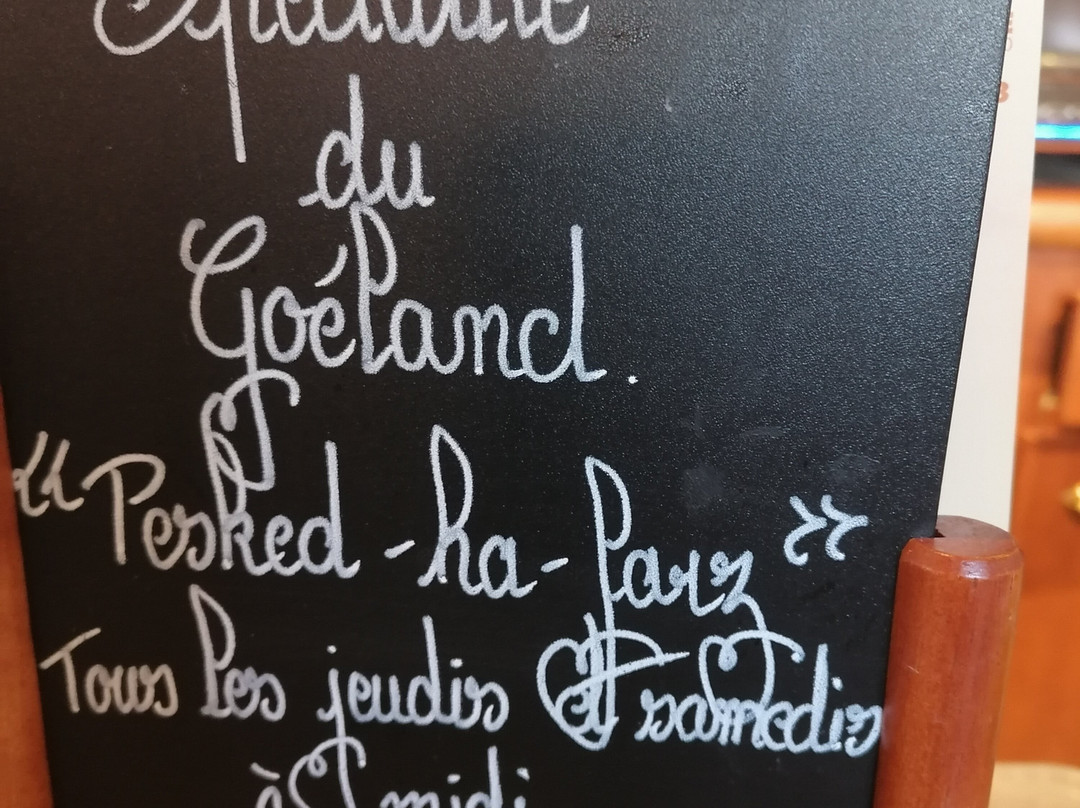 Spécialité
du
Goéland.
"Pesked-ha-farz"
Tous les jeudis et samedis
à midi